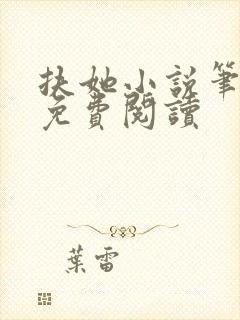 扶她小說筆
免費閱讀
葉雷